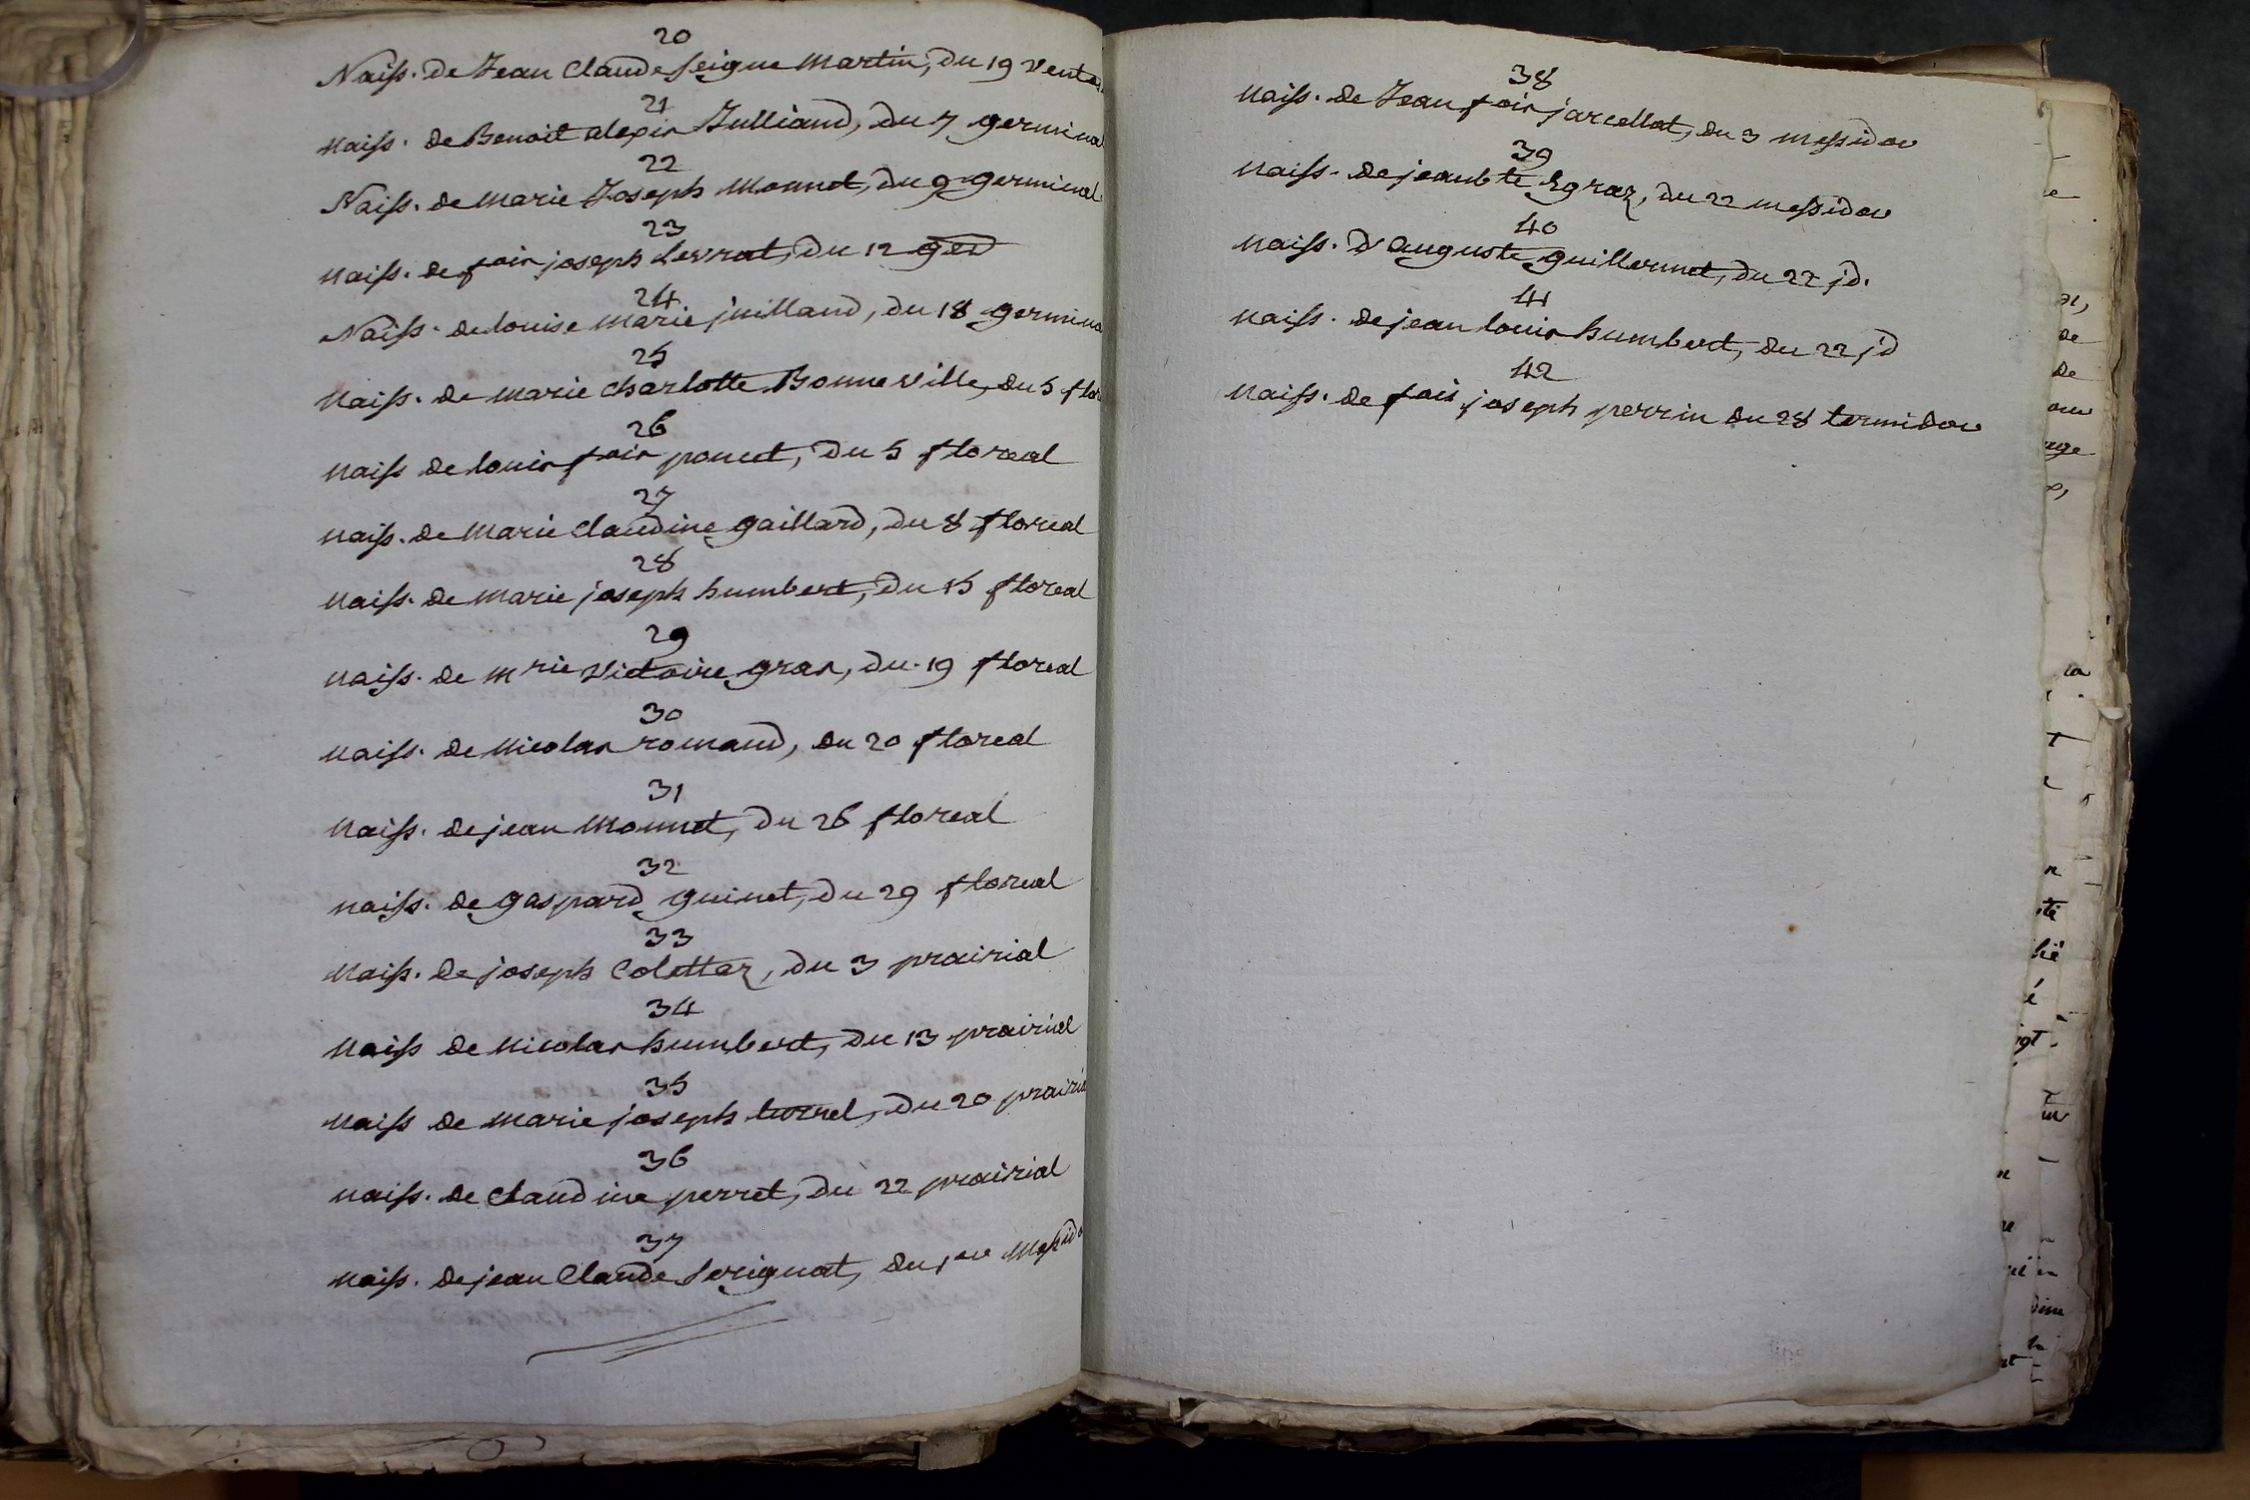 20
Naiss. de Jean Claude Seigne Martin, du 19 vento
21
Naiss. de Benoit alexis Julliand, du 7 germinal
22
Naiss. de Marie Joseph Monnet, du 9 germinal
23
Naiss. de fois joseph Levrat, du 12 ged
24
Naiss. de louise Marie juilland, du 18 germina
25
Naiss. de marie charlotte Bonneville, du 5 flor
26
Naiss de louis fois poncet, du 5 floreal
27
Naiss. de Marie Claudine gaillard, du 8 floreal
28
Naiss. de marie joseph humbert, du 15 floreal
29
Naiss. de Mrie Victoire gras, du 19 floreal
30
Naiss. de Nicolas romand, du 20 floreal
31
Naiss. de jean Monnet, du 26 floreal
32
Naiss. de gaspard guinet, du 29 floreal
33
Naiss. de joseph Colettaz, du 3 prairial
34
Naiss de Nicolas humbert, du 13 prairial
35
Naiss de marie joseph turrel, du 20 prairia
36
Naiss. de Claudine perret, du 22 prairial
37
Naiss. de jean Claude Serignat, du 1er Messido
38
Naiss. de Jean fois jarcellat, du 3 messidor
39
Naiss. de jean bte Egraz, du 22 messidor
40
Naiss. d'auguste guillermet, du 22 jd.
41
Naiss. de jean louis humbert, du 22 jd
42
Naiss. de fois joseph perrin du 28 termidor